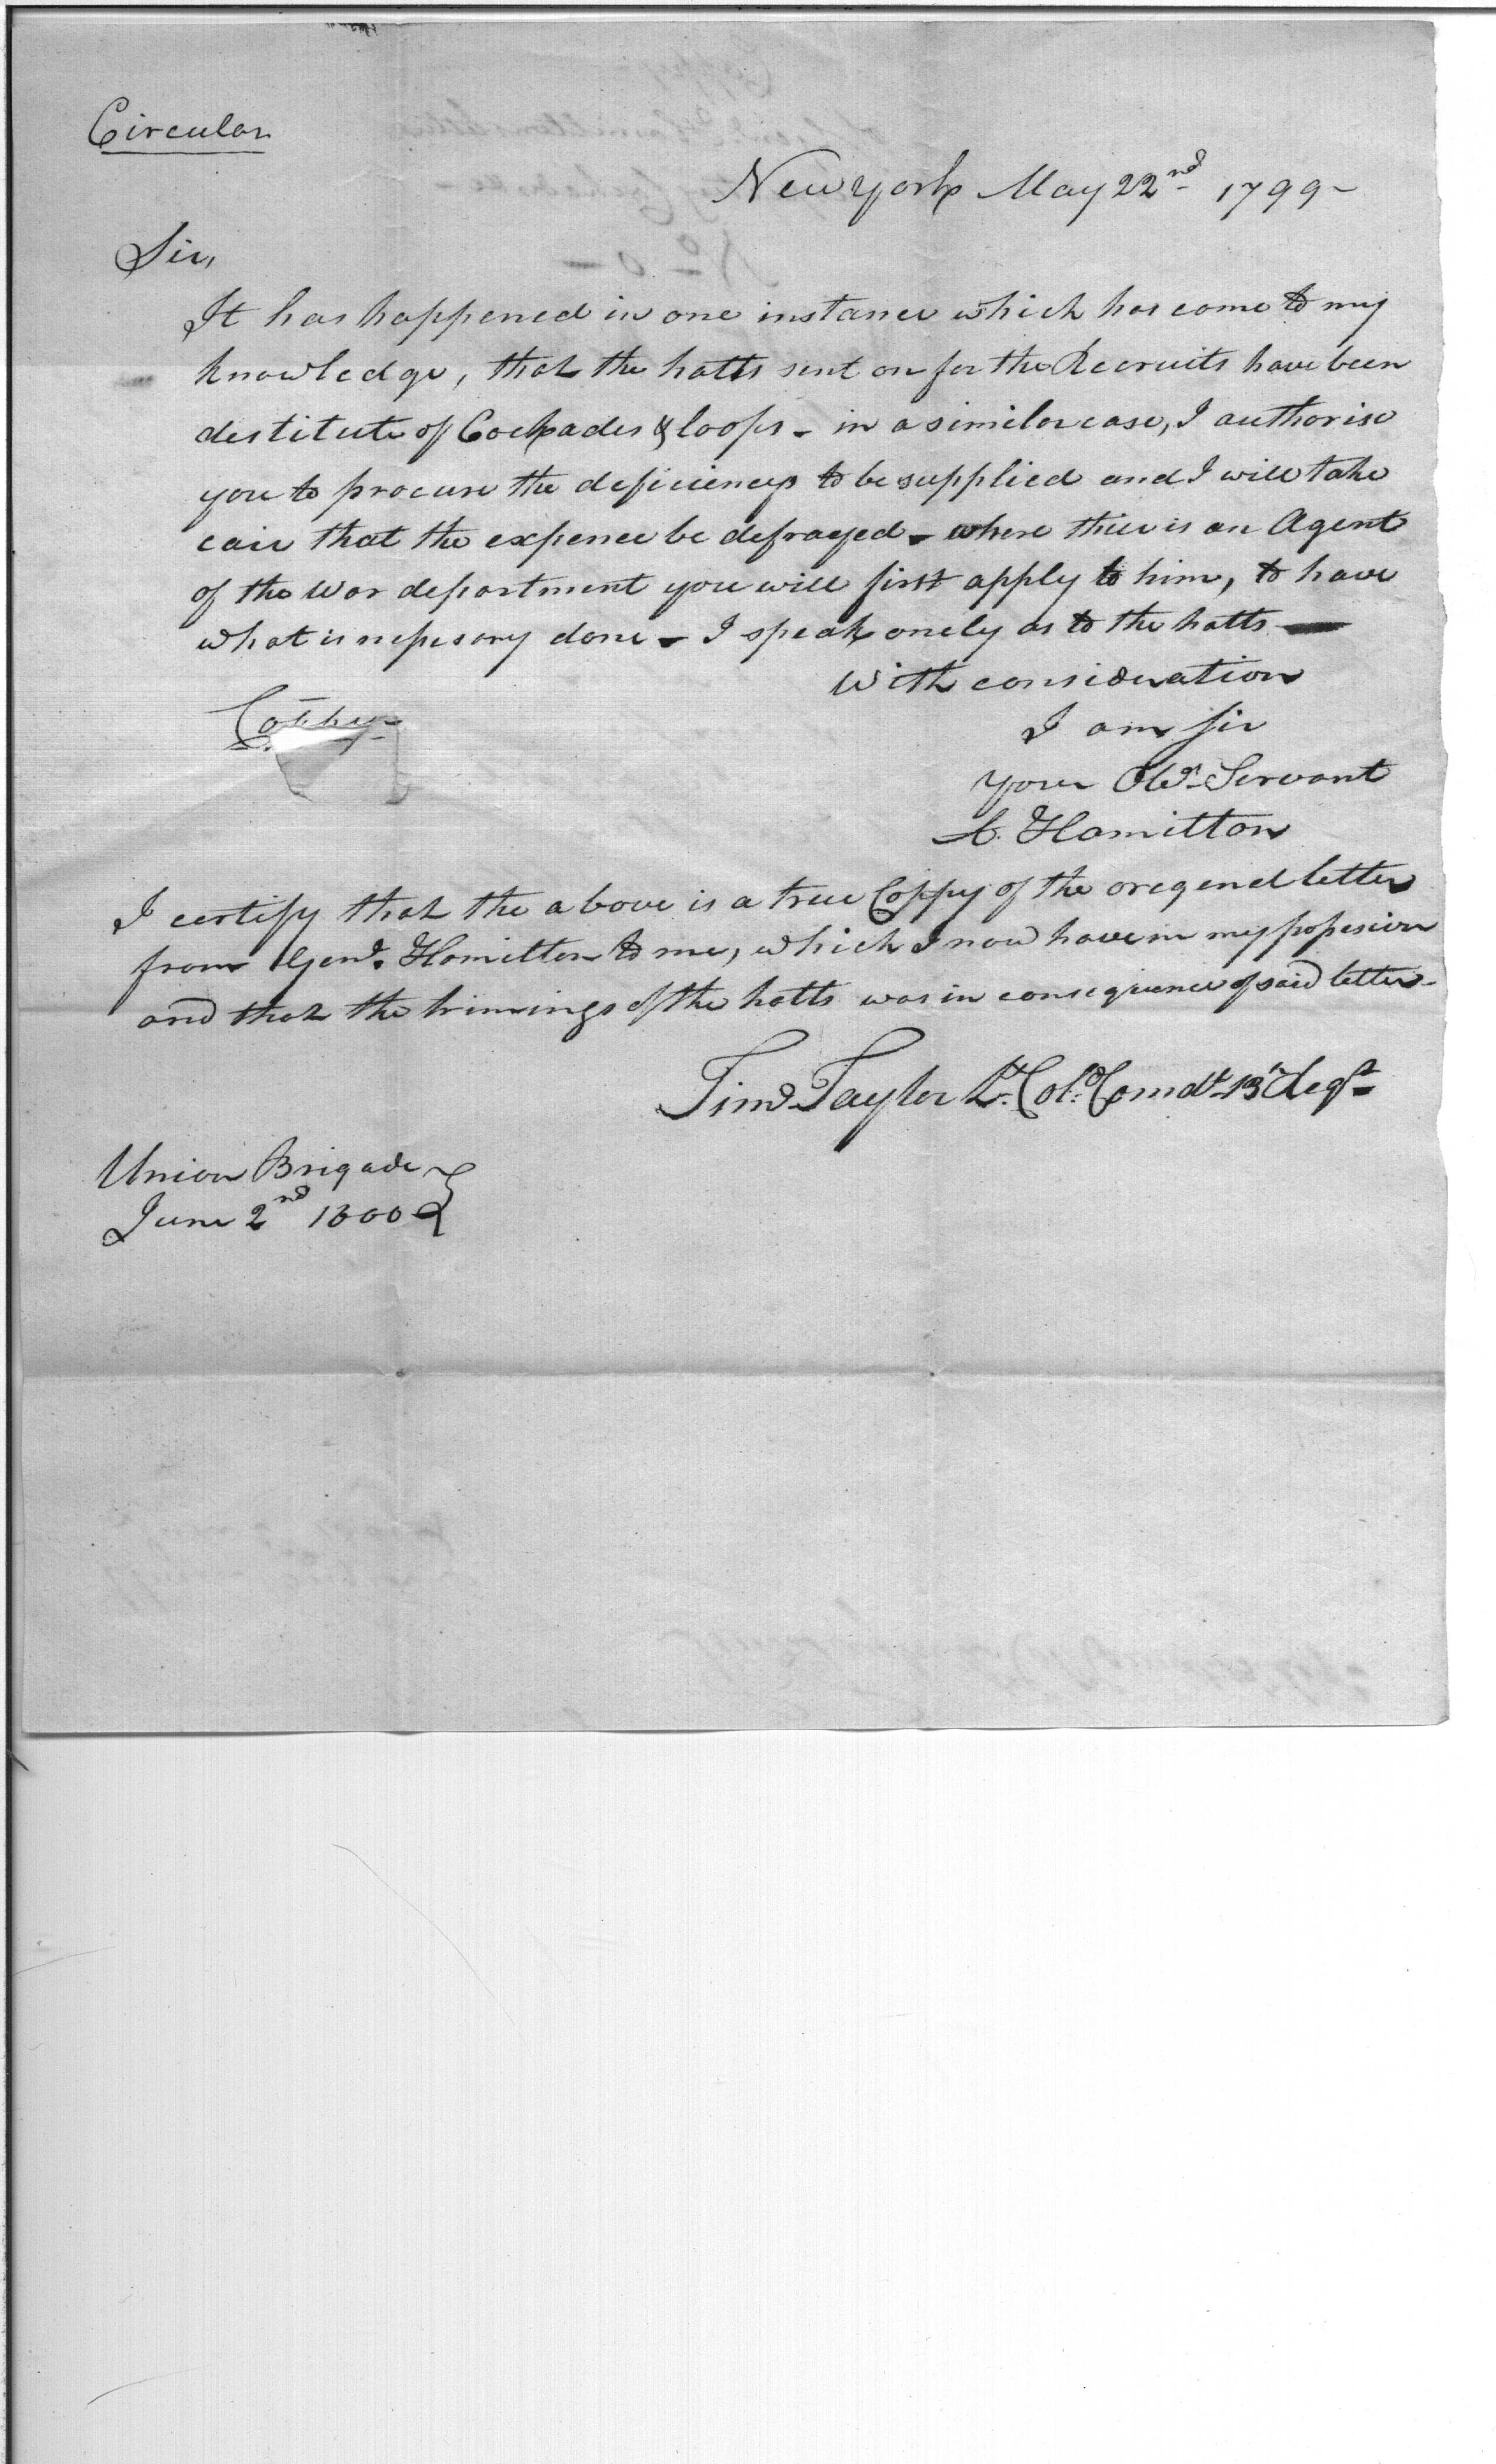 Circular
New York May 22nd 1799 -
Sir,
It has happened in one instance which has come to my
knowledge, that the hatts sent on for the Recruits have been
destitute of Cockades & loops - in a similar case, I authorise
you to procure the deficiencys to be supplied and I will take
care that the expence be defrayed - where there is an Agent
of the War department you will first apply to him, to have
what is nessesary done - I speak onely as to the hatts -
With consideration
I am sir
your Obdt Servant
A. Hamilton
Coppy
I certify that the above is a true Coppy of the oregenel letter
from Genl. Hamilton to me, which I now have in my possesion
and that the trimings of the hatts was in consequence of said letter -
Timo Taylor Lt. Col. Comdt 13th Regt
Union Brigade
June 2nd 1800